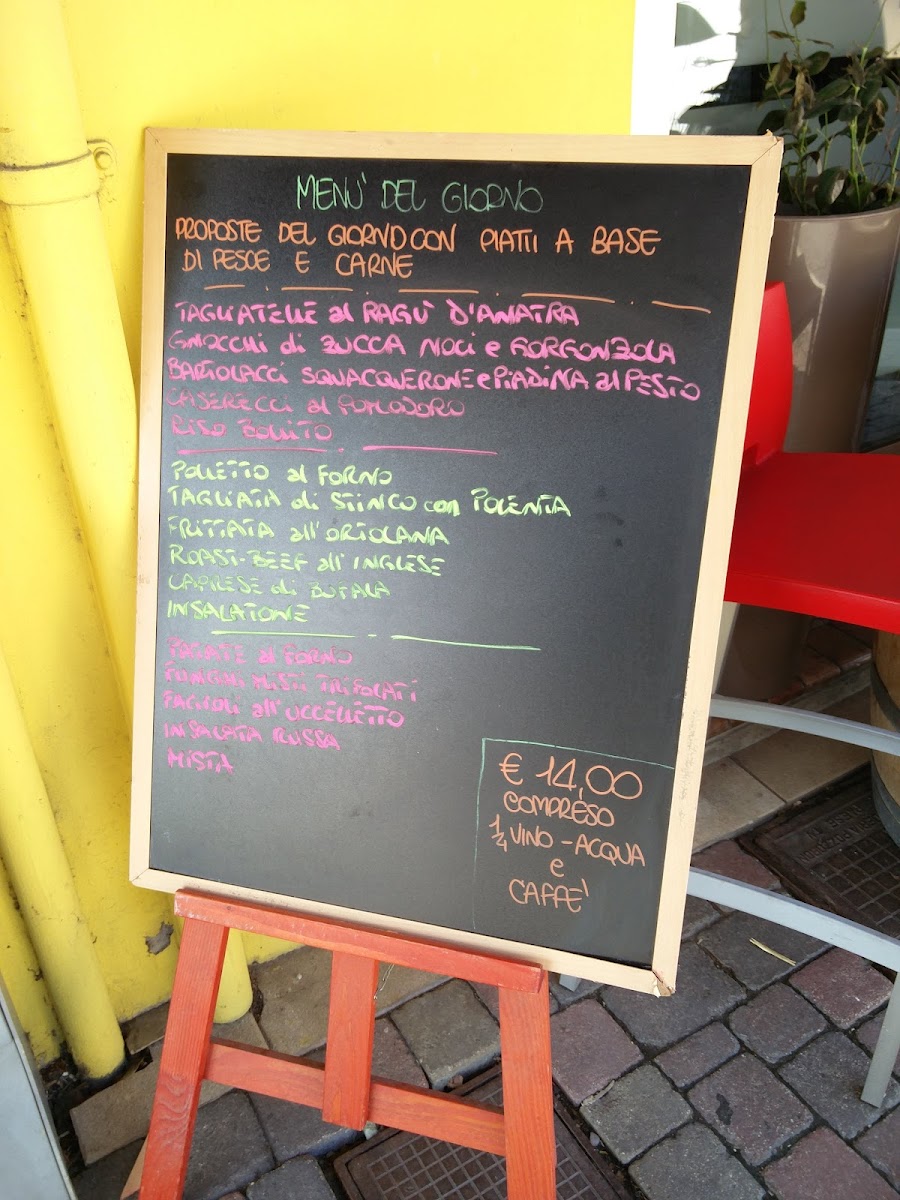 MENU' DEL GIORNO
PROPOSTE DEL GIORNO CON PIATTI A BASE
DI PESCE E CARNE
TAGLIATELLE al RAGU' D'ANATRA
GNOCCHI di ZUCCA NOCI e GORGONZOLA
BARTOLACCI SQUACQUERONE e PIADINA al PESTO
CASERECCI al POMODORO
RISO BOLLITO
POLLETTO al FORNO
TAGLIATA di STINCO con POLENTA
FRITTATA all'ORTOLANA
ROAST-BEEF all'INGLESE
CAPRESE di BUFALA
INSALATONE
PATATE al FORNO
FUNGHI MISTI TRIFOLATI
FAGIOLI all'UCCELLETTO
INSALATA RUSSA
MISTA
€ 14,00
COMPRESO
1/4 VINO - ACQUA
e
CAFFE'